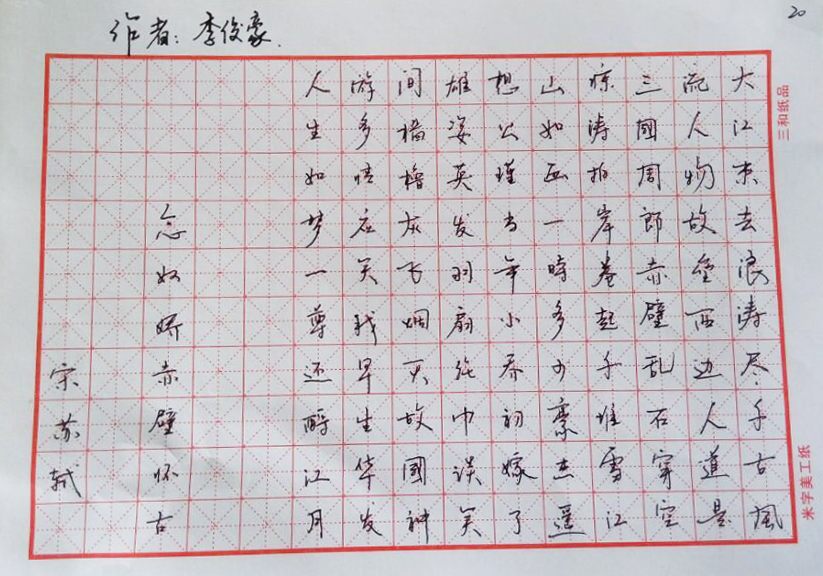 作者：李俊豪
20
大江东去浪涛尽千古風
流人物故垒西边人道是
三國周郎赤壁乱石穿空
惊涛拍岸卷起千堆雪江
山如画一時多少豪杰遥
想公瑾当年小乔初嫁了
雄姿英发羽扇纶巾谈笑
间樯橹灰飞烟灭故國神
游多情应笑我早生华发
人生如梦一尊还酹江月
念奴娇赤壁怀古
宋苏轼
三和纸品
米字美工纸